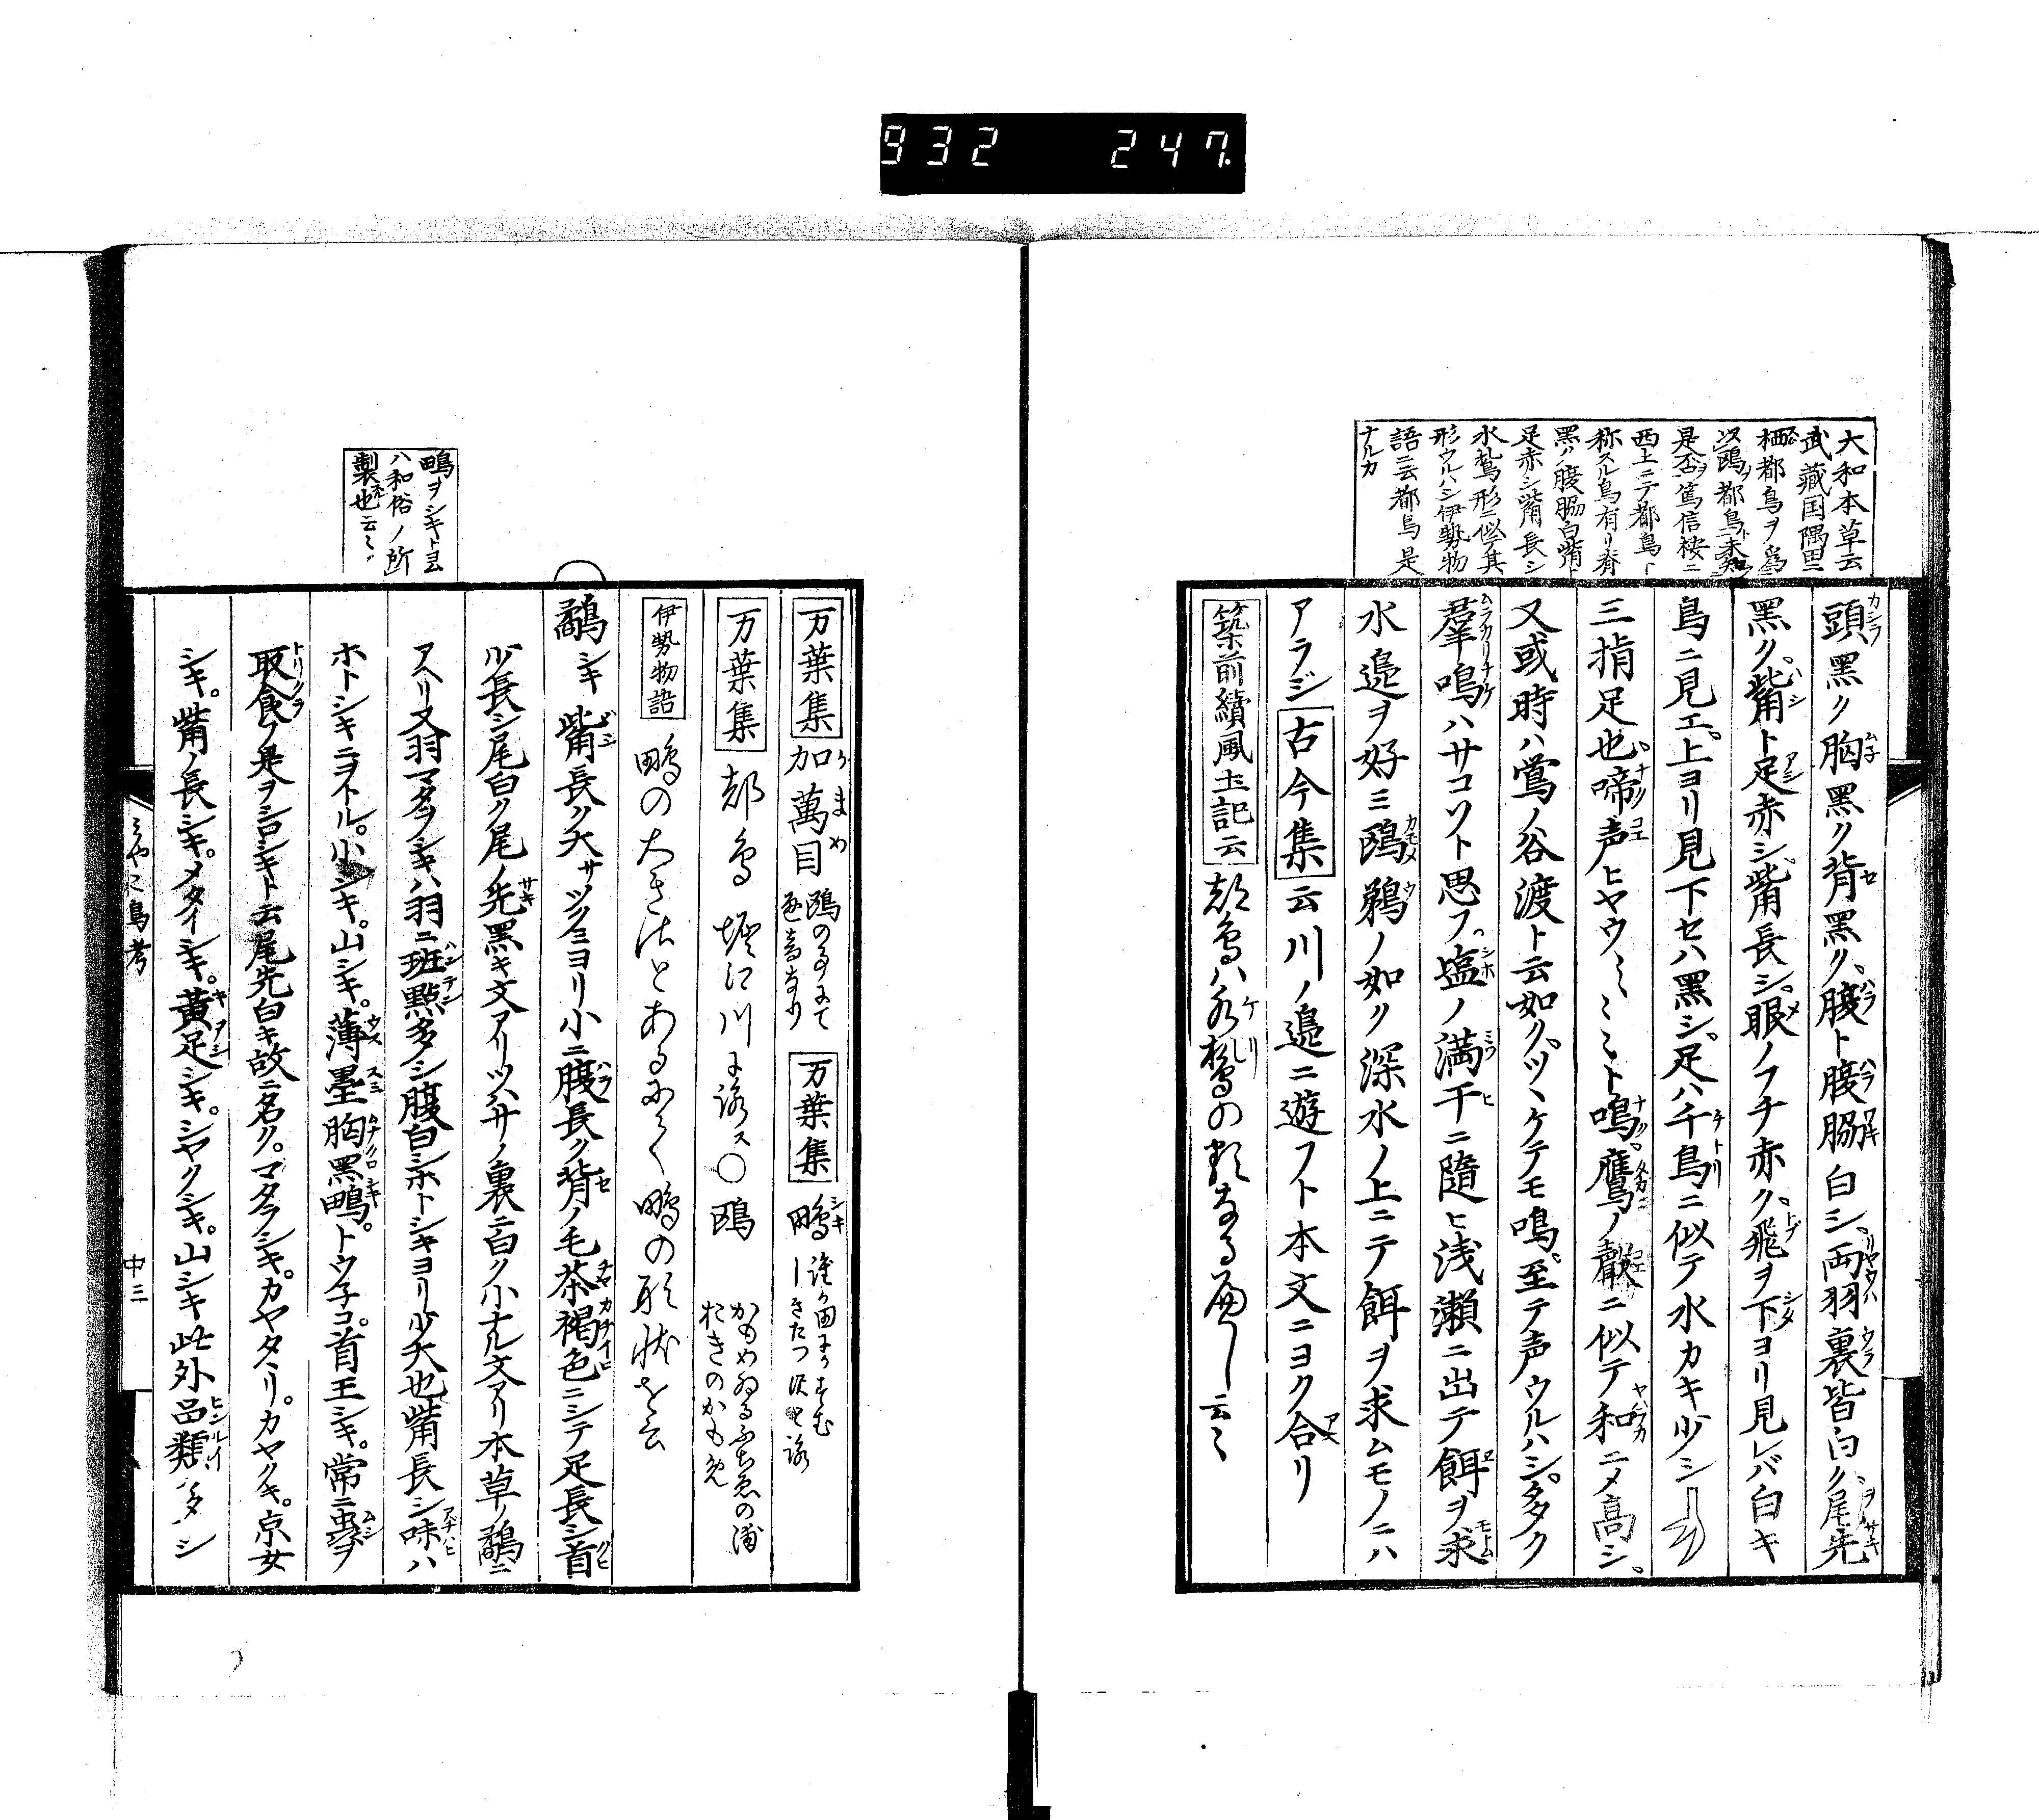 932 247
大和本草云
武藏国隅田ニ
栖都鳥ヲ爲
以鷗都鳥ト未知
是否篤信按ニ
西土ニテ都鳥ト
称スル鳥有リ脊
黑ク腹脇白觜ト
足赤シ觜長シ
水鴛形ニ似テ其
形ウルハシ伊勢物
語ニ云都鳥是
ナルカ
頭黑ク胸黑ク背黑ク腹ト腹脇白シ両羽裏皆白ク尾先
黑ク觜ト足赤シ觜長シ眼ノフチ赤ク飛ヲ下ヨリ見レバ白キ
鳥ニ見エ上ヨリ見下セハ黑シ足ハ千鳥ニ似テ水カキ少シ
三指足也啼声ヒヤウミミミト鳴鷹ノ聲ニ似テ和ニメ高シ
又或時ハ鶯ノ谷渡ト云如クツヽケテモ鳴至テ声ウルハシタク
羣鳴ハサコソト思フ塩ノ満干ニ隨ヒ浅瀬ニ出テ餌ヲ求
水邉ヲ好ミ鷗鵜ノ如ク深水ノ上ニテ餌ヲ求ムモノニハ
アラジ 古今集 云川ノ邉ニ遊フト本文ニヨク合リ
築前續風土記云 都鳥ハ水鳧の類なるへし云々
鴫ヲシキトヨム
ハ和俗ノ所
製也云々
万葉集 加萬目 鷗の 万葉集 鴫
万葉集 都鳥 堀江川に詠ス〇鷗 かもめゐるふぢえの浦
おきのかもめ
伊勢物語 鴫の大きさとある 鴫の形状を云
鷸シキ 觜長ク大サツクミヨリ小ニ腹長ク背ノ毛茶褐色ニシテ足長シ首
少長シ尾白ク尾ノ先黑キ文アリツハサノ裏ニ白ク小ナル文アリ本草ノ鷸ニ
アヘリ又羽マダラシキハ羽ニ斑點多シ腹白シホトシキヨリ少大也觜長シ味ハ
ホトシキニヲトル小シキ山シキ薄墨胸黑鴫トウ子コ首玉シキ常ニ虫ヲ
取食ノ是ヲシロシキト云尾先白キ故ニ名ク マタラシキ カヤタヽリ カヤクキ 京女
シキ 觜ノ長シキ メタイシキ 黄足シキ シヤクシキ 山シキ此外品類多シ
みやこ鳥考
中三